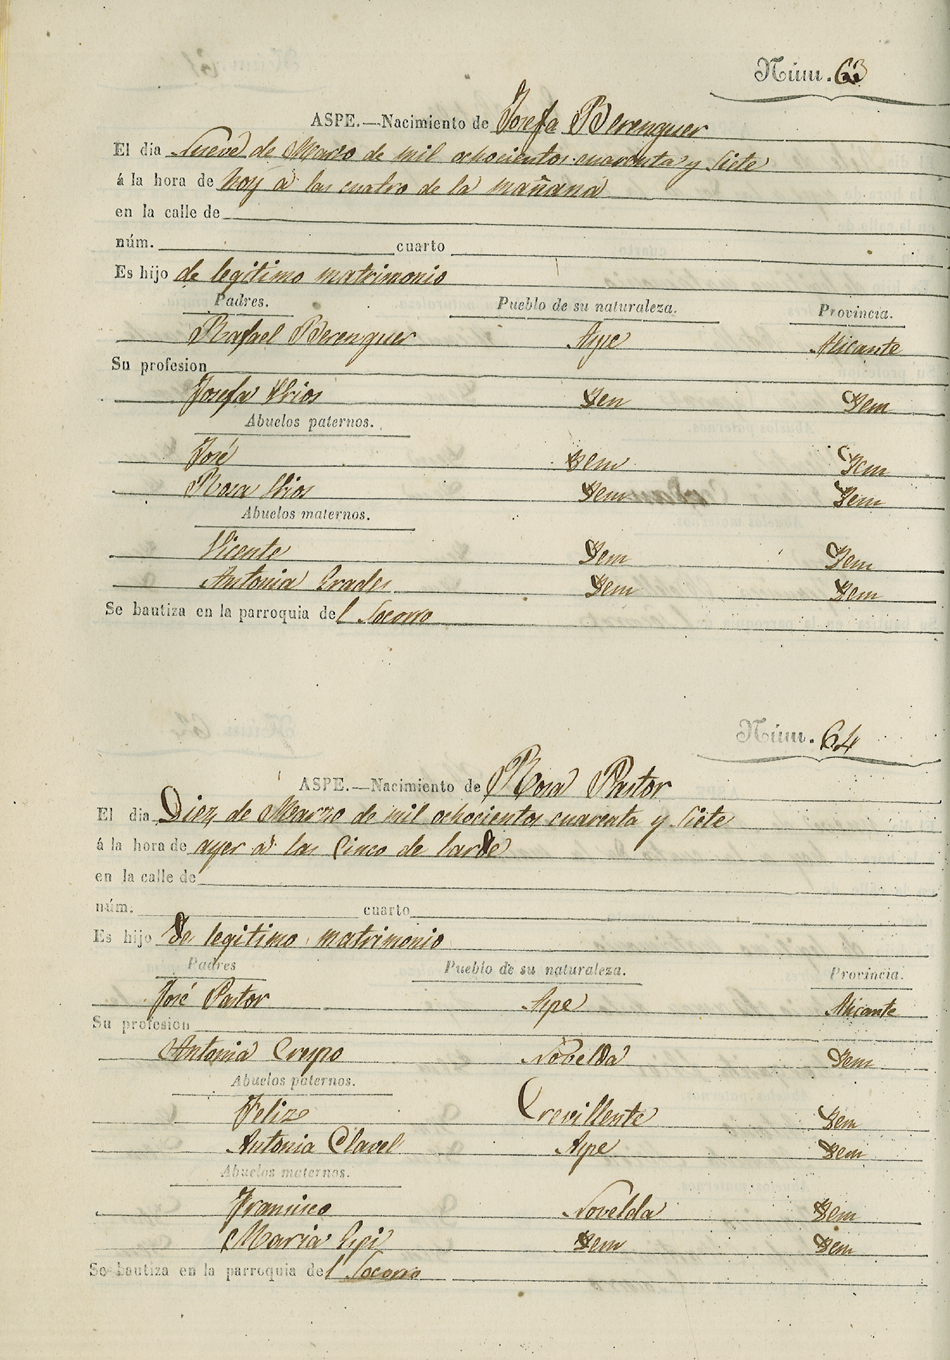 Núm. 63
ASPE.—Nacimiento de Josefa Berenguer
El dia Nueve de Marzo de mil ochocientos cuarenta y Siete
á la hora de hoy á las cuatro de la mañana
en la calle de
núm. cuarto
Es hijo de legitimo matrimonio
Padres. Pueblo de su naturaleza. Provincia.
Rafael Berenguer Aspe Alicante
Su profesion
Josefa Mios Idem Idem
Abuelos paternos.
José Idem Idem
Rosa Mios Idem Idem
Abuelos maternos.
Vicente Idem Idem
Antonia Idem Idem
Se bautiza en la parroquia del Socorro
Núm. 64
ASPE.—Nacimiento de Rosa Pastor
El dia Diez de Marzo de mil ochocientos cuarenta y Siete
á la hora de ayer á las Cinco de tarde
en la calle de
núm. cuarto
Es hijo de legitimo matrimonio
Padres Pueblo de su naturaleza. Provincia.
José Pastor Aspe Alicante
Su profesion
Antonia Crespo Novelda Idem
Abuelos paternos.
Felix Crevillente Idem
Antonia Clavel Aspe Idem
Abuelos maternos.
Francisco Novelda Idem
Maria Idem Idem
Se bautiza en la parroquia del Socorro